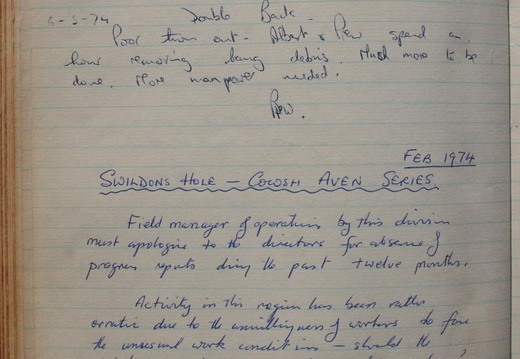 6-3-74 Double Back.
Poor turn out - Albert & Prew spend an
hour removing bang debris. Much more to be
done. More manpower needed.
Prew.
FEB 1974
SWILDONS HOLE - COWSH AVEN SERIES
Field manager of operations by this division
must apologise to the directors for absence of
progress reports during the past twelve months.
Activity in this region has been rather
erratic due to the unwillingness of workers to face
the unusual work conditions - should the